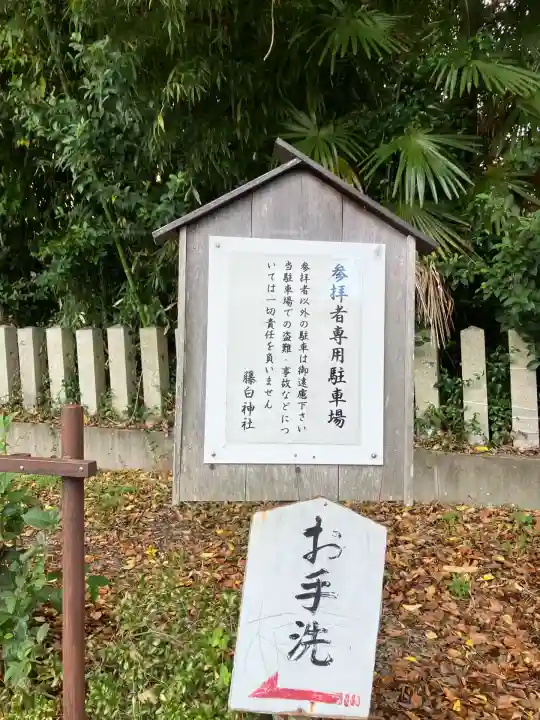 参拝者専用駐車場
参拝者以外の駐車は御遠慮下さい
当駐車場での盗難・事故などにつ
いては一切責任を負いません
藤白神社
お手洗